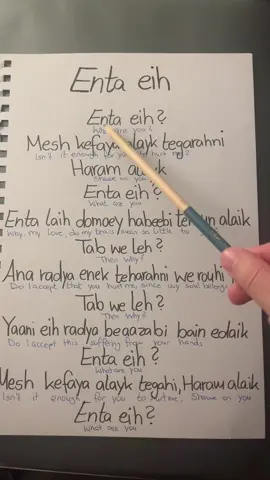 Enta eih
Enta eih?
What are you?
Mesh kefaya alayk tegarahni
Isn't it enough for you to hurt me?
Haram alaik
Shame on you
Enta eih?
What are you
Enta laih domoey habeebi alaik
Why, my love, do my tears mean so little to
Tab we leh?
Then why?
Ana radya enek teharahni we rouhi
Do I accept that you hurt me, since my soul belongs
Tab we leh?
Then why?
Yaani eih radya beqazabi bain edaik
Do I accept this suffering from your hands
Enta eih?
What are you
Mesh kefaya alayk tegahi, Haram alaik
Isn't it enough for you to hurt me, Shame on you
Enta eih?
What are you